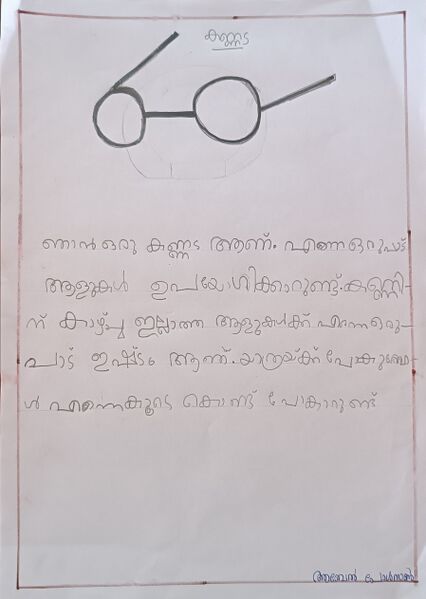 കണ്ണട
ഞാൻ ഒരു കണ്ണട ആണ്. എന്നെ ഒരുപാട്
ആളുകൾ ഉപയോഗിക്കാറുണ്ട്. കണ്ണി-
ന് കാഴ്ച്ച ഇല്ലാത്ത ആളുകൾക്ക് എന്നെ ഒരു-
പാട് ഇഷ്ടം ആണ്. യാത്രയ്ക്ക് പോകുമ്പോ-
ൾ എന്നെകൂടെ കൊണ്ട് പോകാറുണ്ട്